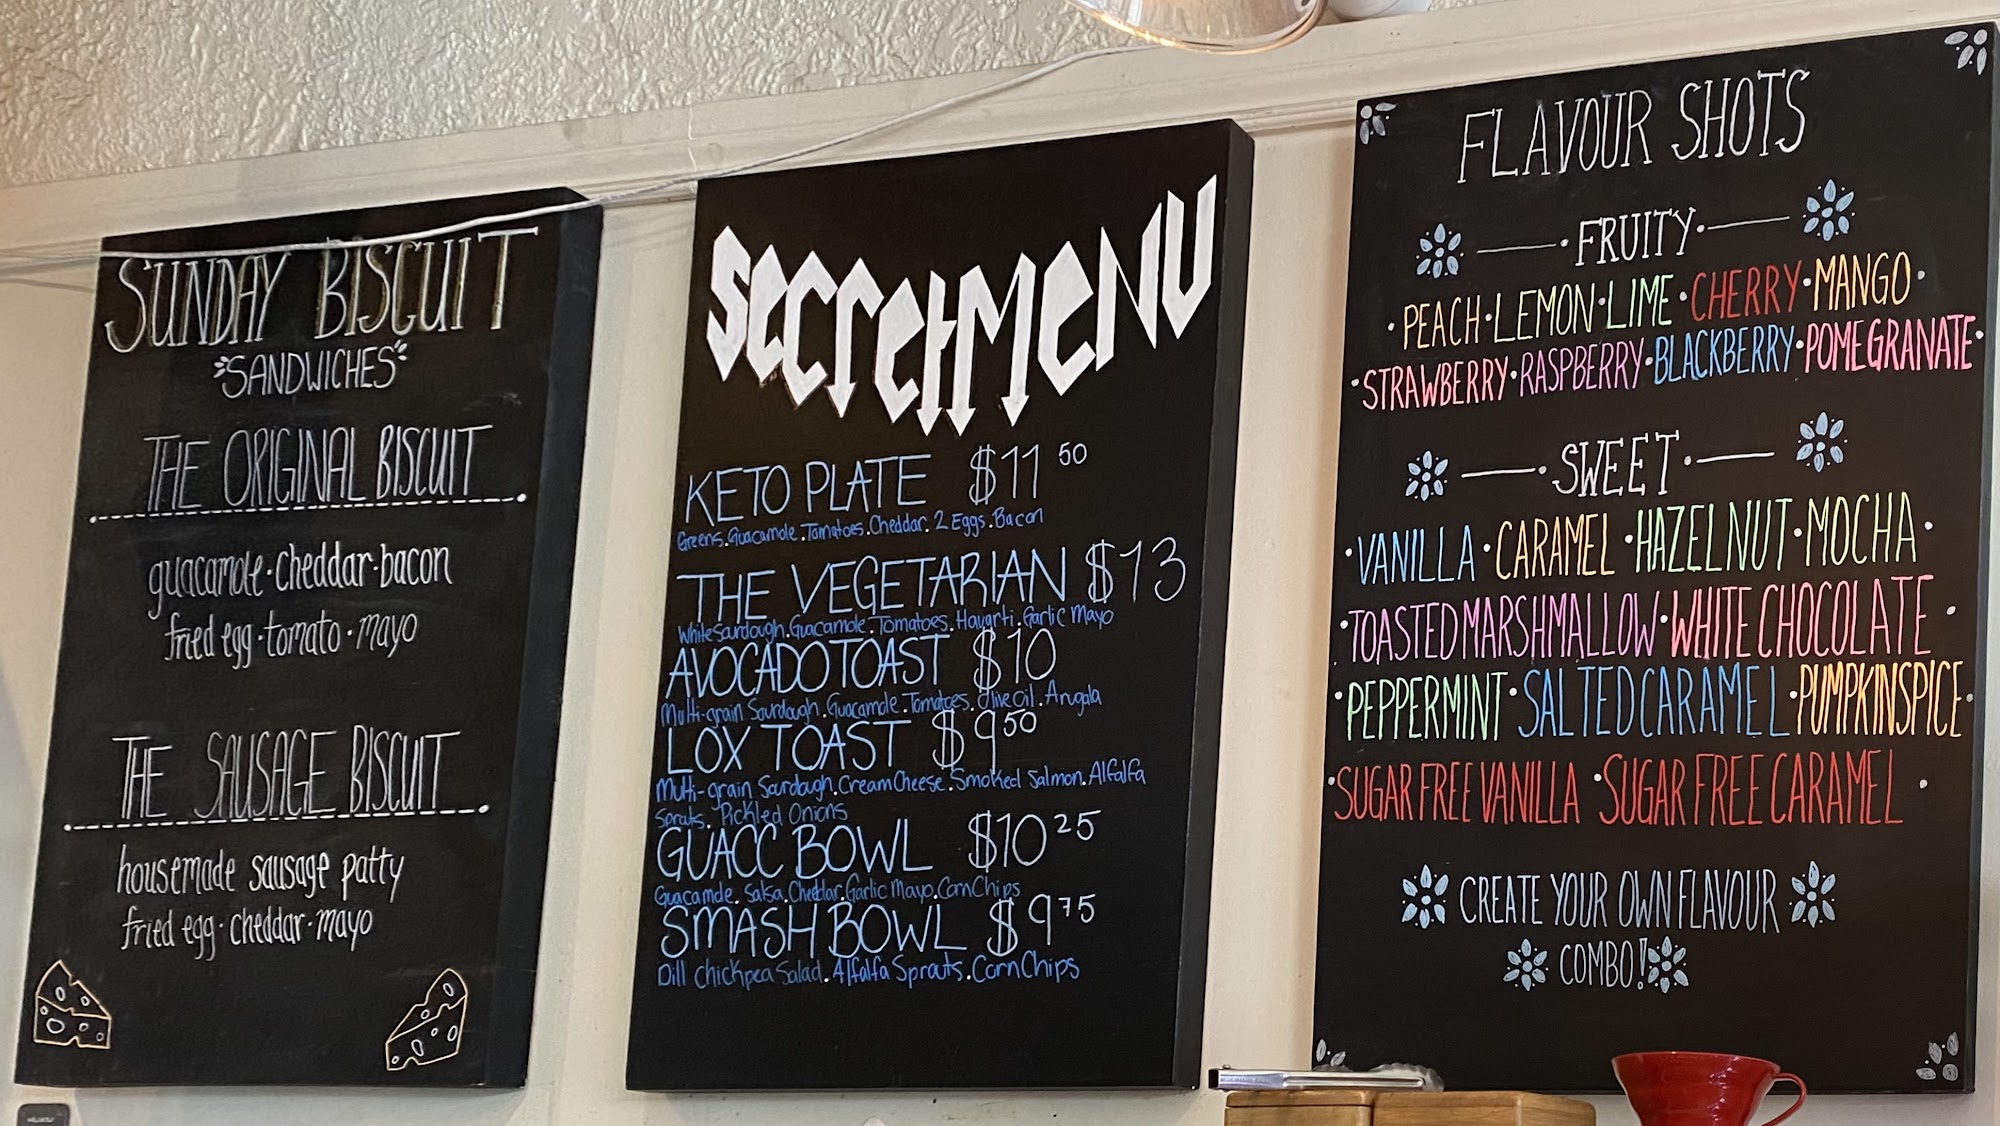 SUNDAY BISCUIT
"SANDWICHES"
THE ORIGINAL BISCUIT
guacamole · cheddar · bacon
fried egg · tomato · mayo
THE SAUSAGE BISCUIT
housemade sausage patty
fried egg · cheddar · mayo
secret Menu
KETO PLATE $11 50
Greens. Guacamole. Tomatoes. Cheddar. 2 Eggs. Bacon
THE VEGETARIAN $13
White Sourdough. Guacamole. Tomatoes. Havarti. Garlic Mayo
AVOCADO TOAST $10
Multi-grain Sourdough. Guacamole. Tomatoes. Olive Oil. Arugala
LOX TOAST $9 50
Multi-grain Sourdough. Cream Cheese. Smoked Salmon. Alfalfa
Sprouts. Pickled Onions
GUACC BOWL $10 25
Guacamole. Salsa. Cheddar. Garlic Mayo. Corn Chips
SMASH BOWL $9 75
Dill Chickpea Salad. Alfalfa Sprouts. Corn Chips
FLAVOUR SHOTS
FRUITY
· PEACH · LEMON · LIME · CHERRY · MANGO ·
· STRAWBERRY · RASPBERRY · BLACKBERRY · POMEGRANATE ·
SWEET
· VANILLA · CARAMEL · HAZELNUT · MOCHA ·
· TOASTED MARSHMALLOW · WHITE CHOCOLATE ·
· PEPPERMINT · SALTED CARAMEL · PUMPKIN SPICE ·
· SUGAR FREE VANILLA · SUGAR FREE CARAMEL ·
CREATE YOUR OWN FLAVOUR
COMBO!